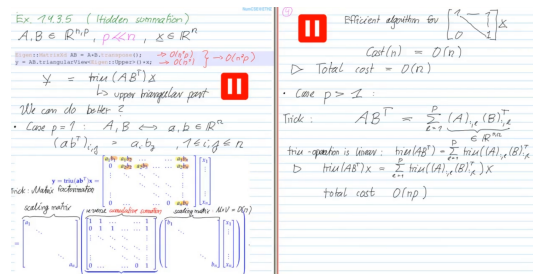 Ex. 1.4.3.5 (Hidden summation)
A, B ∈ ℝ^{n,p}, p ≪ n, x ∈ ℝ^n
Eigen::MatrixXd AB = A*B.transpose(); → O(n²p)
y = AB.triangularView<Eigen::Upper>()*x; → O(n²) } → O(n²p)
y = triu(ABᵀ)x
↳ upper triangular part
We can do better ?
• Case p=1 : A, B ⟷ a, b ∈ ℝ^n
(abᵀ)_{i,j} = a_i b_j, 1 ≤ i,j ≤ n
y = triu(abᵀ)x =
Trick: Matrix factorization
scaling matrix
inverse cumulative summation
scaling matrix
Efficient algorithm for [1 1 0 1] x
Cost(n) = O(n)
▷ Total cost = O(n)
• Case p > 1 :
Trick: ABᵀ = Σ_{ℓ=1}^{p} (A)_{:,ℓ} (B)_{:,ℓ}ᵀ
∈ ℝ^{n,n}
triu-operation is linear: triu(ABᵀ) = Σ_{ℓ=1}^{p} triu((A)_{:,ℓ}(B)_{:,ℓ}ᵀ)
▷ triu(ABᵀ)x = Σ_{ℓ=1}^{p} triu((A)_{:,ℓ}(B)_{:,ℓ}ᵀ)x
total cost O(np)